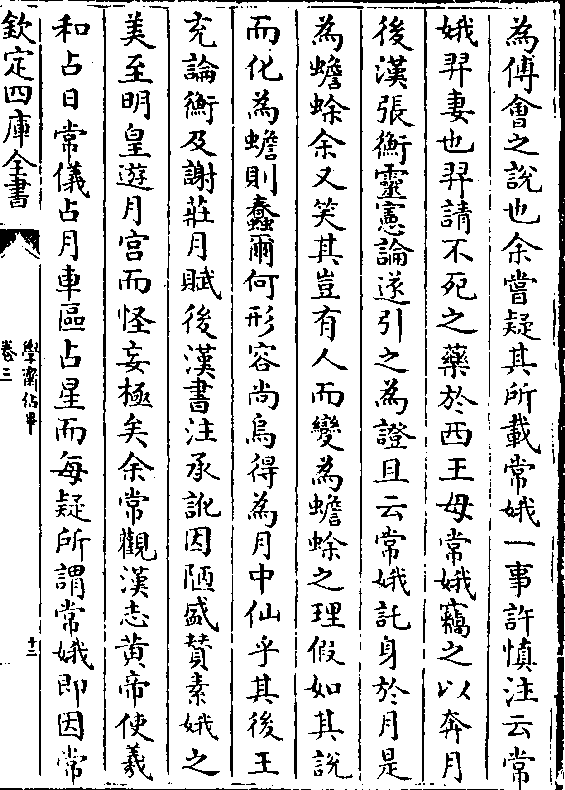 為傅會之說也余嘗疑其所載常娥一事許慎注云常
娥羿妻也羿請不死之藥於西王母常娥竊之以奔月
後漢張衡靈憲論遂引之為證且云常娥託身於月是
為蟾蜍余又笑其豈有人而變為蟾蜍之理假如其說
而化為蟾則蠢爾何形容尚烏得為月中仙乎其後王
充論衡及謝莊月賦後漢書注承訛因陋盛賛素娥之
美至明皇遊月宫而怪妄極矣余常觀漢志黄帝使羲
和占日常儀占月車區占星而每疑所謂常娥即因常
欽定四庫全書
學齋佔畢
卷三
十三